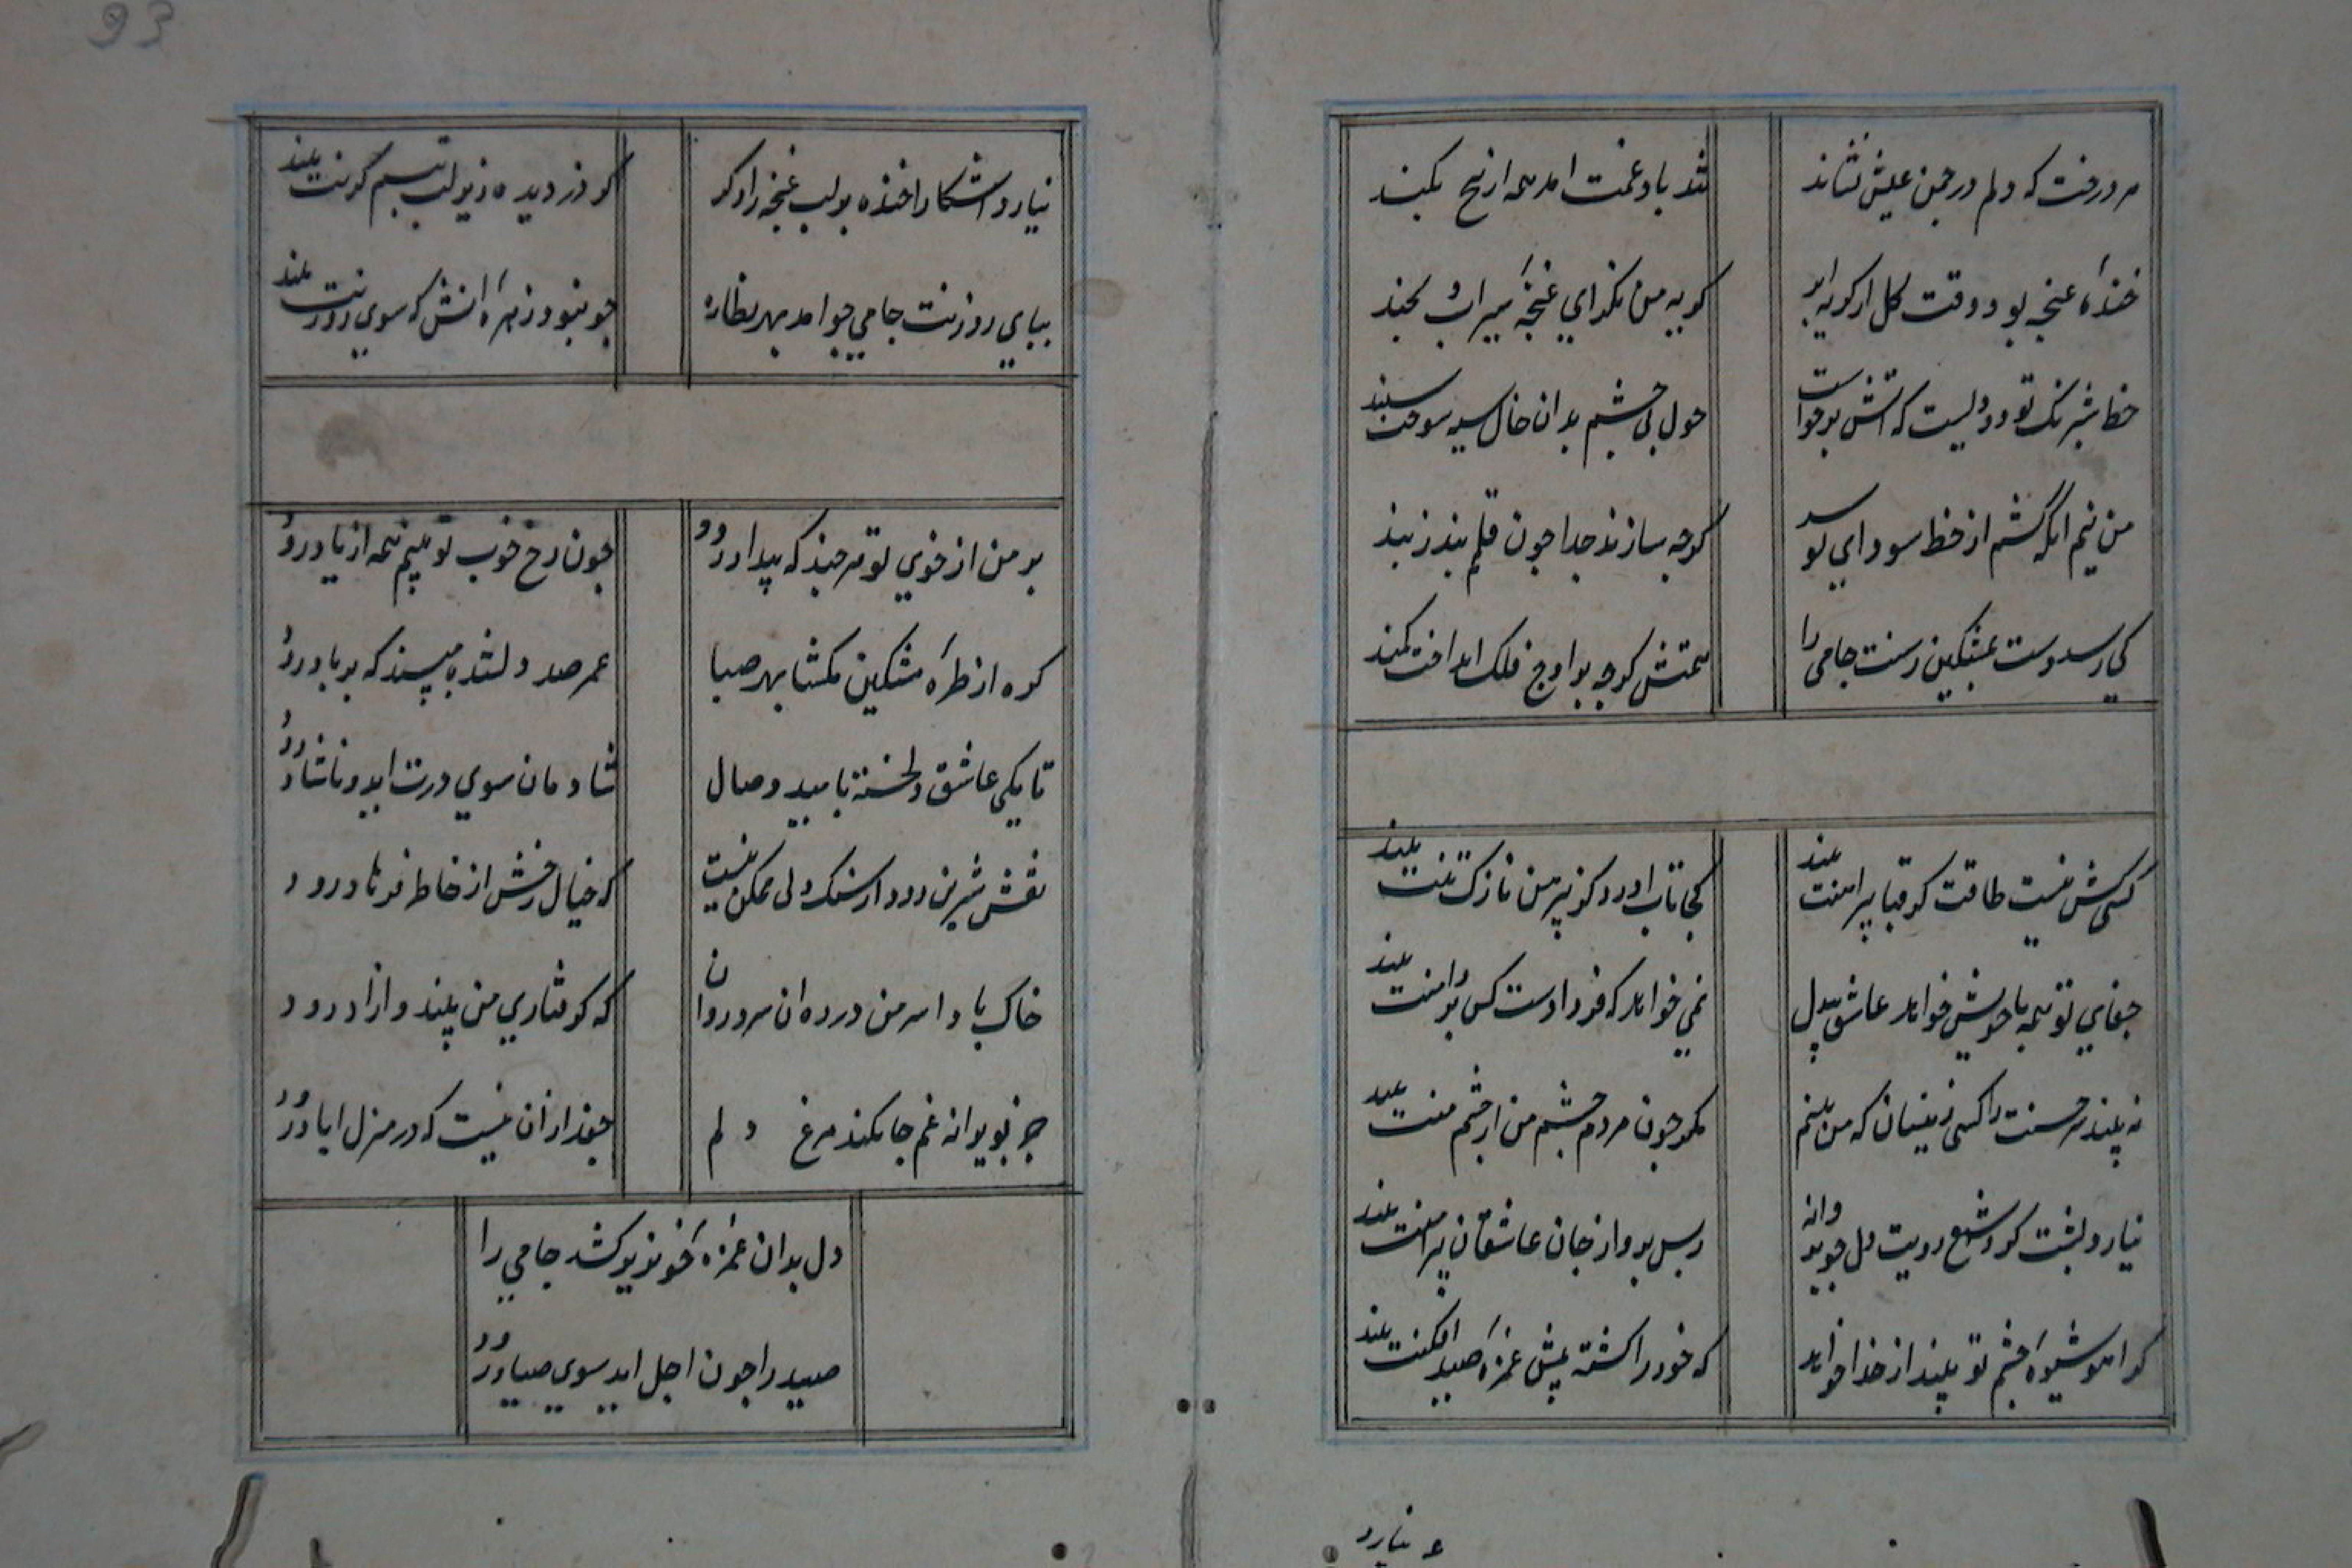 هر درخت که دلم در چمن عیش نشاند
شد باد غمت امد همه از بیخ بکند
خندهٔ غنچه بود وقت گل از گریه ابر
گریه من نگر ای غنچهٔ سیراب بخند
خط شبرنگ تو دودیست که اتش برخواست
چون بی چشم بدان خال سیه سوخت سپند
من نیم انکه کشم از خط سودای تو سر
گرچه سازند جدا چون قلم بند ز بند
کی رسد دست بمشکین رسنت جامی را
همتش گرچه بر اوج فلک انداخت کمند
کسی کش نیست طاقت کز قبا پیراهنت بیند
کجا تاب اورد کز پیرهن نازک تنت بیند
جفای تو همه با خویش خواهد عاشق بیدل
نمی خواهد که فردا دست کس بر دامنت بیند
نه بیند هر حسنت را کسی زینسان که من بینم
مگر چون مردم چشم من از چشم منت بیند
نیارد پشت کرد شمع رویت دل چو پروانه
زبس پرواز جان عاشقان پیرامنت بیند
کر اهو شیوهٔ چشم تو بیند از خدا خواهد
که خود را کشته پیش غمزهٔ صید افکنت بیند
نیارد
نیارد اشکارا خنده بر لب غنچه را دگر
کز دزدیده در زیر لب تبسم کردنت بیند
بپای روزنت جامی چو امد بهر نظاره
چو نبود زهرهٔ انش که سوی روزنت بیند
بر من از خوی تو هر چند که بیداد رود
چون رخ خوب تو بینم همه از یاد رود
گره از طرهٔ مشکین مگشا بهر صبا
عمر صد دلشده مپسند که بر باد رود
تا بکی عاشق دلخسته بامید وصال
شادمان سوی درت اید و ناشاد رود
نقش شیرین رود از سنگ ولی ممکن نیست
که خیال رخش از خاطر فرهاد رود
خاک باد اسر من در ره ان سرو روان
که گرفتاری من بیند و ازاد رود
جز بویرانه غم جا نکند مرغ دلم
جغد ازان نیست که در منزل اباد رود
دل بدان غمزهٔ خونریز کشد جامی را
صید را چون اجل اید سوی صیاد رود
93